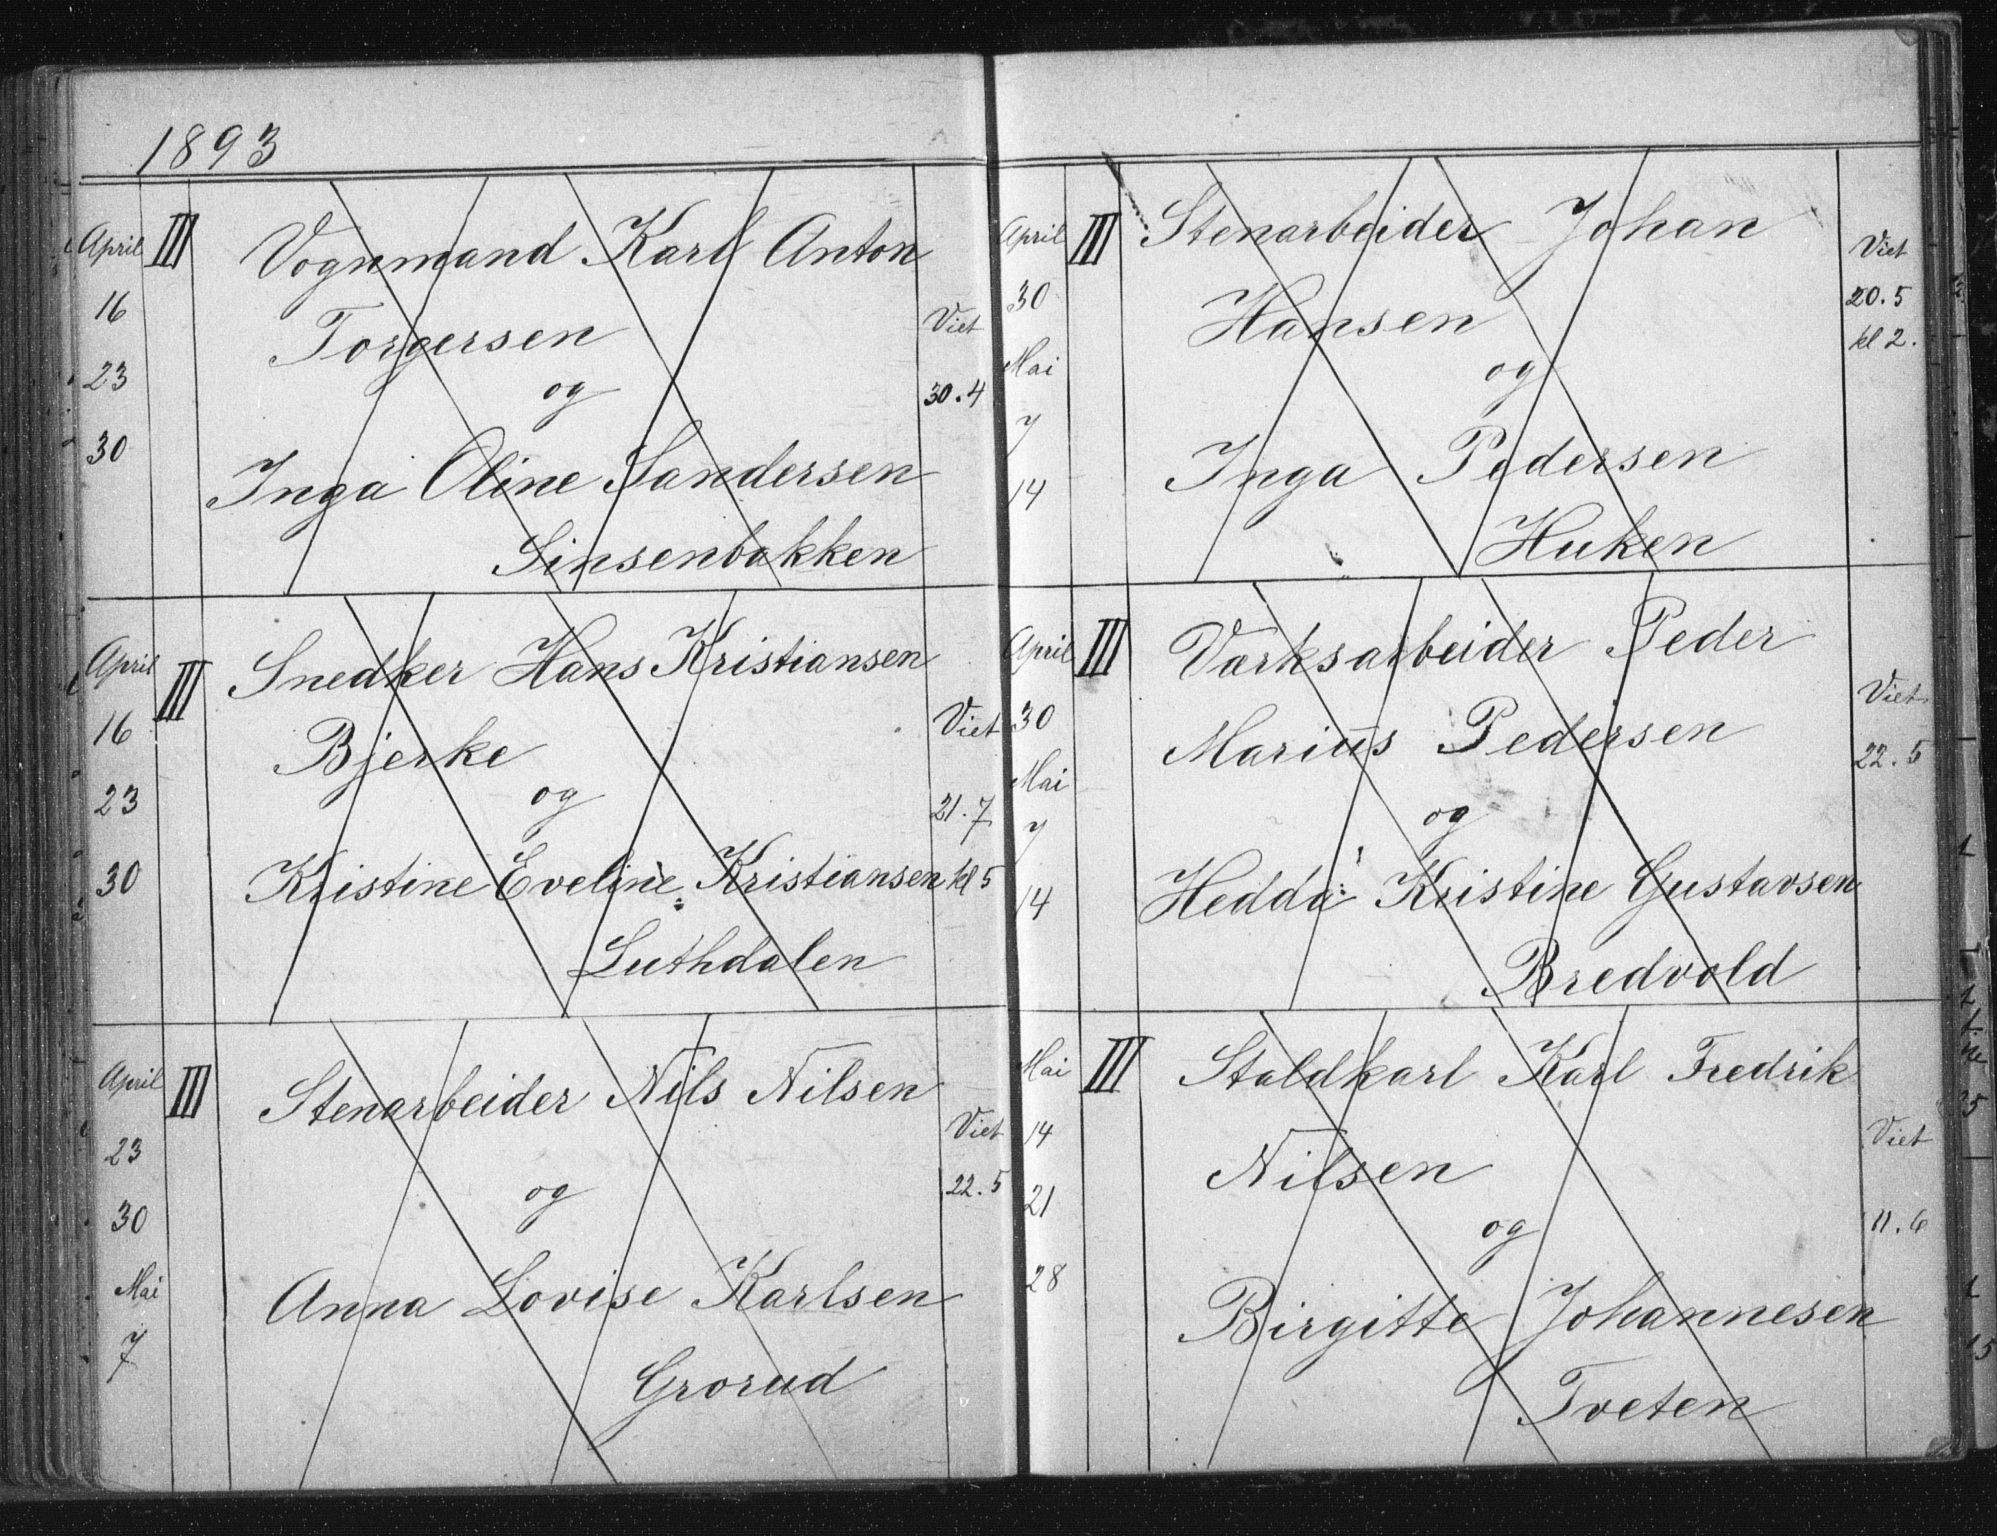 1893
April III Vognmand Karl Anton
16 Torgersen Viet
23 og 30.4
30 Inga Oline Sandersen
Sinsenbakken
April III Snedker Hans Kristiansen
16 Bjerke Viet
23 og 21.7
30 Kristine Eveline Kristiansen kl 5
Luthdalen
April III Stenarbeider Nils Nilsen
23 Viet
30 og 22.5
Mai Anna Lovise Karlsen
7 Grorud
April III Stenarbeider Johan Viet
30 Hansen 20.5
Mai og kl 2.
7 Inga Pedersen
14 Huken
April III Værksarbeider Peder
30 Marius Pedersen Viet
Mai 22.5
7 og
14 Hedda Kristine Gustavsen
Bredvold
Mai III Staldkarl Karl Fredrik
14 Nilsen Viet
21 og 11.6
28 Birgitte Johannesen
Tveten